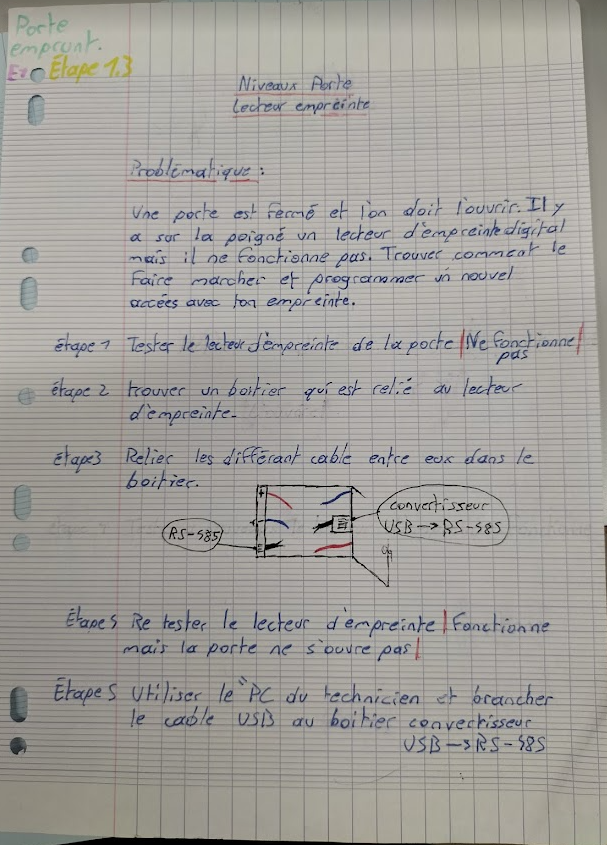 Porte
emprunt.
Étape 1.3
Niveaux Porte
Lecteur empreinte
Problématique :
Une porte est fermé et l'on doit l'ouvrir. Il y
a sur la poigné un lecteur d'empreinte digital
mais il ne fonctionne pas. Trouver comment le
faire marcher et programmer un nouvel
accées avec ton empreinte.
étape 1 Tester le lecteur d'empreinte de la porte | Ne fonctionne |
pas
étape 2 trouver un boitier qui est relié au lecteur
d'empreinte.
étape 3 Relier les différant cable entre eux dans le
boitier.
convertisseur
USB → RS-485
RS-485
Étape 5 Re tester le lecteur d'empreinte | Fonctionne
mais la porte ne s'ouvre pas |
Étape 5 Utiliser le PC du technicien et brancher
le cable USB au boitier convertisseur
USB → RS-485